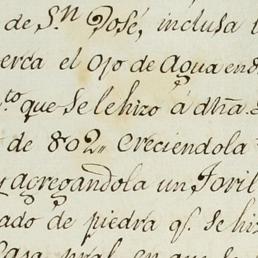 de S.ⁿ José, inclusa l
erca el Ojo de Agua en
to que se le hizo á dha.
de 802,, creciendola
y agregandola un Toril
ado de piedra q.ͤ se hi
Casa pral. en que